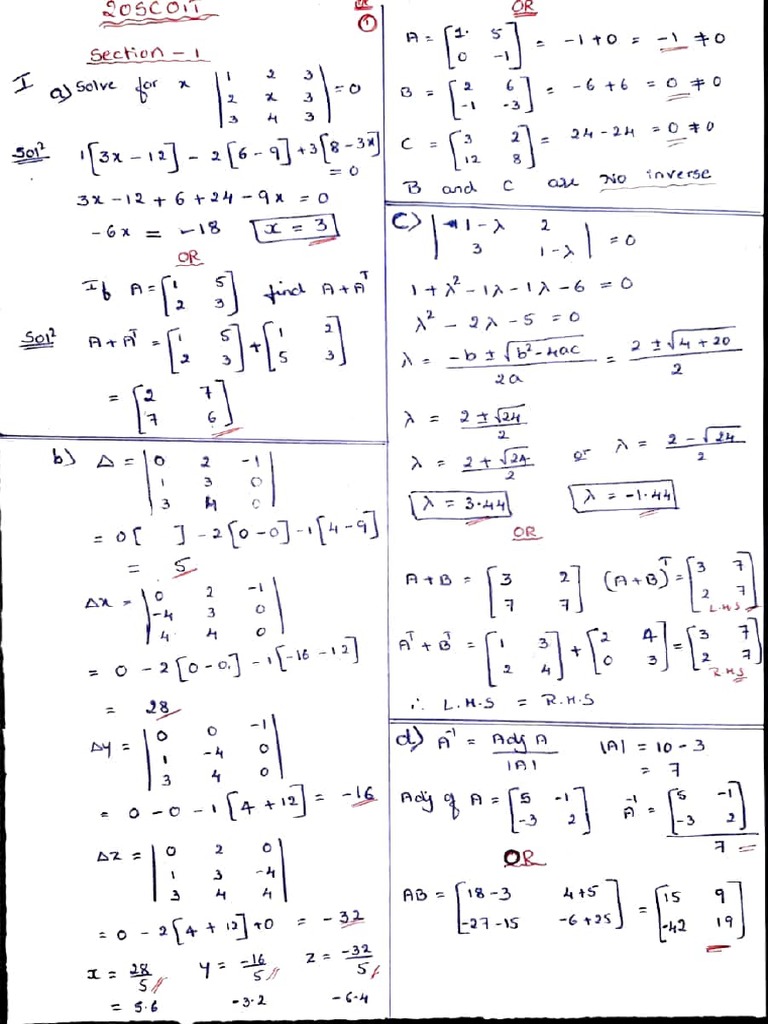 20SC01T
①
Section - 1
I a) Solve for x | 1 2 3 |
| 2 x 3 | = 0
| 3 4 3 |
Sol² 1[3x - 12] - 2[6 - 9] + 3[8 - 3x]
= 0
3x - 12 + 6 + 24 - 9x = 0
-6x = -18 x = 3
OR
If A = [1 5] find A + Aᵀ
[2 3]
Sol² A + Aᵀ = [1 5] + [1 2]
[2 3] [5 3]
= [2 7]
[7 6]
b) Δ = | 0 2 -1 |
| 1 3 0 |
| 3 4 0 |
= 0[ ] - 2[0 - 0] - 1[4 - 9]
= 5
Δx = | 0 2 -1 |
| -4 3 0 |
| 4 4 0 |
= 0 - 2[0 - 0] - 1[-16 - 12]
= 28
Δy = | 0 0 -1 |
| 1 -4 0 |
| 3 4 0 |
= 0 - 0 - 1[4 + 12] = -16
Δz = | 0 2 0 |
| 1 3 -4 |
| 3 4 4 |
= 0 - 2[4 + 12] + 0 = -32
x = 28/5 y = -16/5 z = -32/5
= 5.6 -3.2 -6.4
OR
A = [1 5] = -1 + 0 = -1 ≠ 0
[0 -1]
B = [2 6] = -6 + 6 = 0 ≠ 0
[-1 -3]
C = [3 2] = 24 - 24 = 0 ≠ 0
[12 8]
B and C are No inverse
c) | 1-λ 2 | = 0
| 3 1-λ |
1 + λ² - 1λ - 1λ - 6 = 0
λ² - 2λ - 5 = 0
λ = -b ± √b² - 4ac / 2a = 2 ± √4 + 20 / 2
λ = 2 ± √24 / 2
λ = 2 + √24 / 2 or λ = 2 - √24 / 2
λ = 3.44 λ = -1.44
OR
A + B = [3 2] (A + B)ᵀ = [3 7]
[7 7] [2 7]
L.H.S
Aᵀ + Bᵀ = [1 3] + [2 4] = [3 7]
[2 4] [0 3] [2 7]
R.H.S
∴ L.H.S = R.H.S
d) A⁻¹ = Adj A / |A| |A| = 10 - 3
= 7
Adj of A = [5 -1] A⁻¹ = [5 -1]
[-3 2] [-3 2]
7
OR
AB = [18 - 3 4 + 5] = [15 9]
[-27 - 15 -6 + 25] [-42 19]